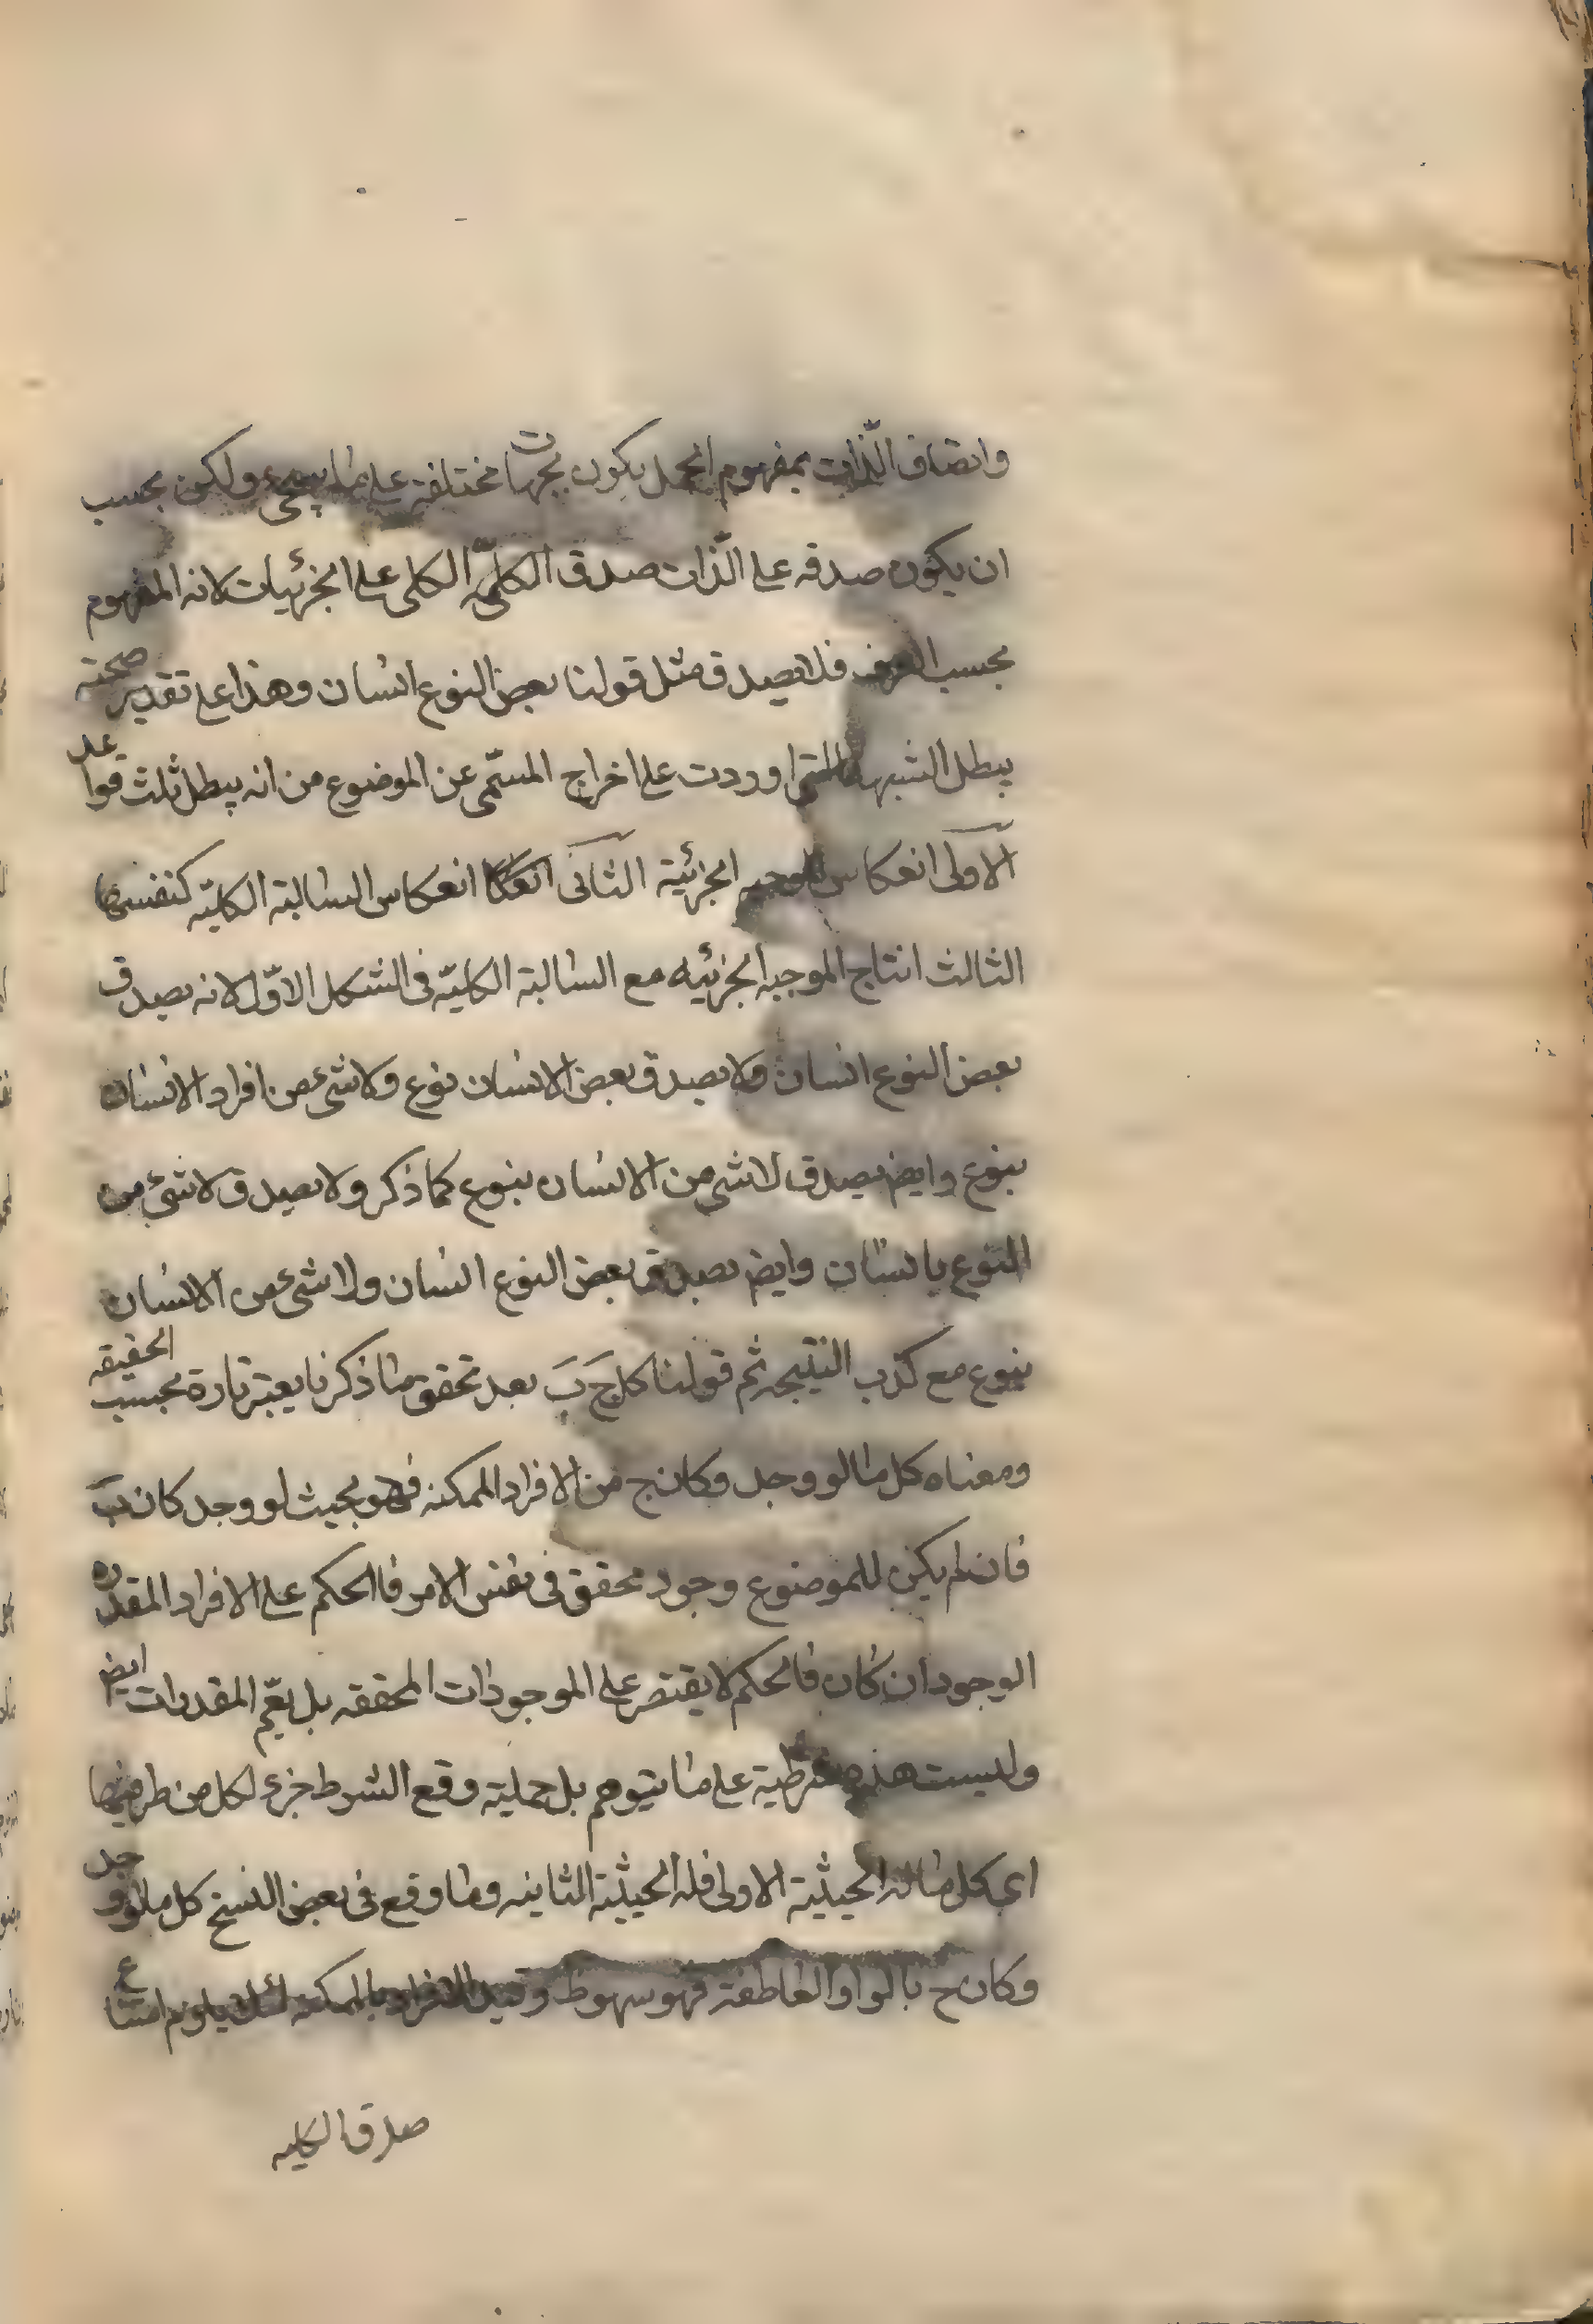 واتصاف الذات بمفهوم المحمل يكون بجهات مختلفة على ما سيجيء ولكن بحسب
ان يكون صدقه على الذات صدق الكلية الكلي على الجزئيات لانه المفهوم
بحسب العرف فلا يصدق مثل قولنا بعض النوع انسان وهذا على تقدير صحته
يبطل الشبهة التي اوردت على اخراج المسمى عن الموضوع من انه يبطل ثلث قواعد
الاولى انعكاس الموجبه الجزئية الثانى انعكا انعكاس السالبة الكليه كنفسها
الثالث انتاج الموجبه الجزئيه مع السالبة الكليه في الشكل الاول لانه يصدق
بعض النوع انسان ولا يصدق بعض الانسان نوع ولا شيء من افراد الانسان
بنوع وايض يصدق لا شي من الانسان بنوع كما ذكر ولا يصدق لا شيء من
النوع بانسان وايض يصدق بعض النوع انسان ولا شيء من الانسان
بنوع مع كذب النتيجه ثم قولنا كل ج ب بعد تحقق ما ذكرنا يعتبر تارة بحسب الحقيقه
ومعناه كل ما لو وجد وكان ج من الافراد الممكنه فهو بحيث لو وجد كان ب
فان لم يكن للموضوع وجود محقق في نفس الامر فالحكم على الافراد المقدره
الوجود ان كان فالحكم لا يقتصر على الموجودات المحققه بل يعم المقدرات ايض
وليست هذه شرطية على ما يتوهم بل حملية وقع الشرط جزء لكل من طرفيها
اي كل ما له الحيثية الاولى فله الحيثية الثانيه وما وقع في بعض النسخ كل ما لو وجد
وكان ج بالواو العاطفة فهو سهو ط وقيد الافراد بالممكنه لئلا يلزم امتناع
صدق الكليه